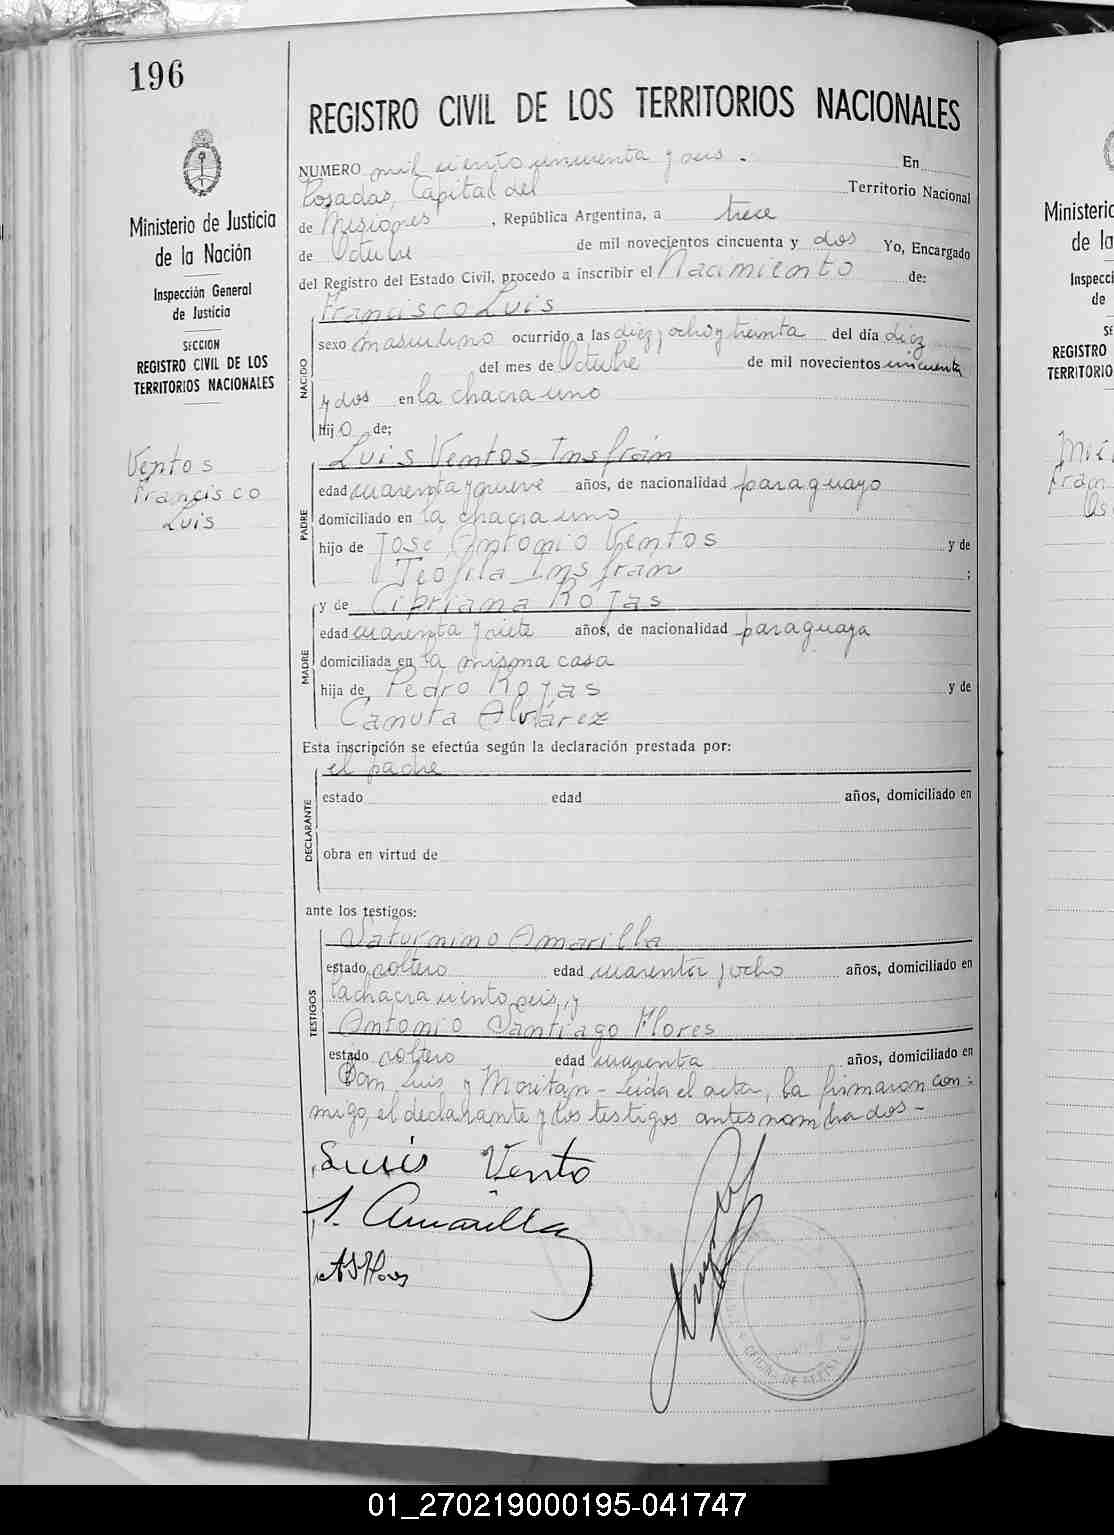 196
REGISTRO CIVIL DE LOS TERRITORIOS NACIONALES
Ministerio de Justicia
de la Nación
Inspección General
de Justicia
SECCION
REGISTRO CIVIL DE LOS
TERRITORIOS NACIONALES
Ventos
Francisco
Luis
NUMERO mil ciento cincuenta y seis. En
Posadas, Capital del Territorio Nacional
de Misiones, República Argentina, a trece
de Octubre de mil novecientos cincuenta y dos Yo, Encargado
del Registro del Estado Civil, procedo a inscribir el Nacimiento de:
NACIDO
Francisco Luis
sexo masculino ocurrido a las diez y ocho y treinta del día diez
del mes de Octubre de mil novecientos cincuenta
y dos en la chacra uno
Hijo de;
PADRE
Luis Ventos Insfrán
edad cuarenta y nueve años, de nacionalidad paraguayo
domiciliado en la chacra uno
hijo de José Antonio Ventos y de
Teofila Insfrán ;
MADRE
y de Cipriana Rojas
edad cuarenta y siete años, de nacionalidad paraguaya
domiciliada en la misma casa
hija de Pedro Rojas y de
Canuta Alvárez
Esta inscripción se efectúa según la declaración prestada por:
DECLARANTE
el padre
estado edad años, domiciliado en
obra en virtud de
ante los testigos:
TESTIGOS
Saturnino Amarilla
estado soltero edad cuarenta y ocho años, domiciliado en
la chacra ciento seis, y
Antonio Santiago Flores
estado soltero edad cuarenta años, domiciliado en
San Luis y Moritán - Leida el acta, la firmaron con-
migo, el declarante y los testigos antes nombrados-
Luis Vento
S. Amarilla
A S Flores
OFICINA DE
Ministerio
de la
Inspecci
de
REGISTRO
TERRITORIO
01_270219000195-041747